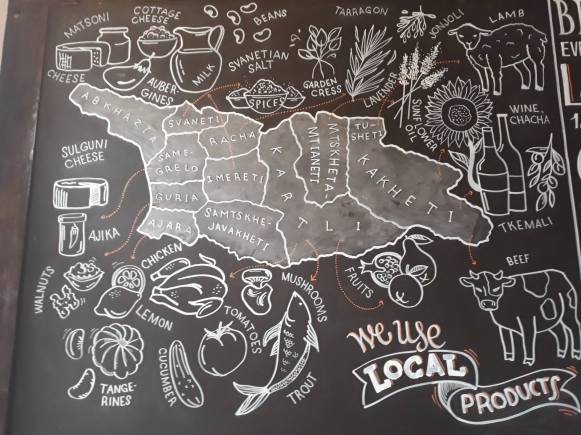 MATSONI
COTTAGE
CHEESE
BEANS
TARRAGON
JONJOLI
LAMB
CHEESE
AUBER-
GINES
MILK
SVANETIAN
SALT
SPICES
GARDEN
CRESS
LAVENDER
SUNFLOWER
OIL
WINE,
CHACHA
ABKHAZIA
SVANETI
RACHA
SAME-
GRELO
IMERETI
GURIA
AJARA
SAMTSKHE-
JAVAKHETI
KARTLI
MTSKHETA
MTIANETI
TU-
SHETI
KAKHETI
SULGUNI
CHEESE
AJIKA
TKEMALI
WALNUTS
LEMON
CHICKEN
TOMATOES
MUSHROOMS
FRUITS
BEEF
TANGE-
RINES
CUCUMBER
TROUT
We use
LOCAL
PRODUCTS